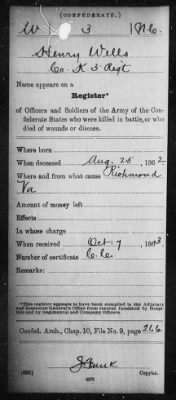 (CONFEDERATE.)
W 3 N.C.
Henry Wells
Co. K 3 Reg't
Name appears on a
Register*
of Officers and Soldiers of the Army of the Con-
federate States who were killed in battle, or who
died of wounds or disease.
Where born
When deceased Aug. 25, 1862
Where and from what cause Richmond
Va
Amount of money left
Effects
In whose charge
When received Oct. 7, 1863
Number of certificate
Remarks:
*This register appears to have been compiled in the Adjutant
and Inspector General's Office from returns furnished by Hospi-
tals and by Regimental and Company Officers.
Confed. Arch., Chap. 10, File No. 9, page 266
Copyist.